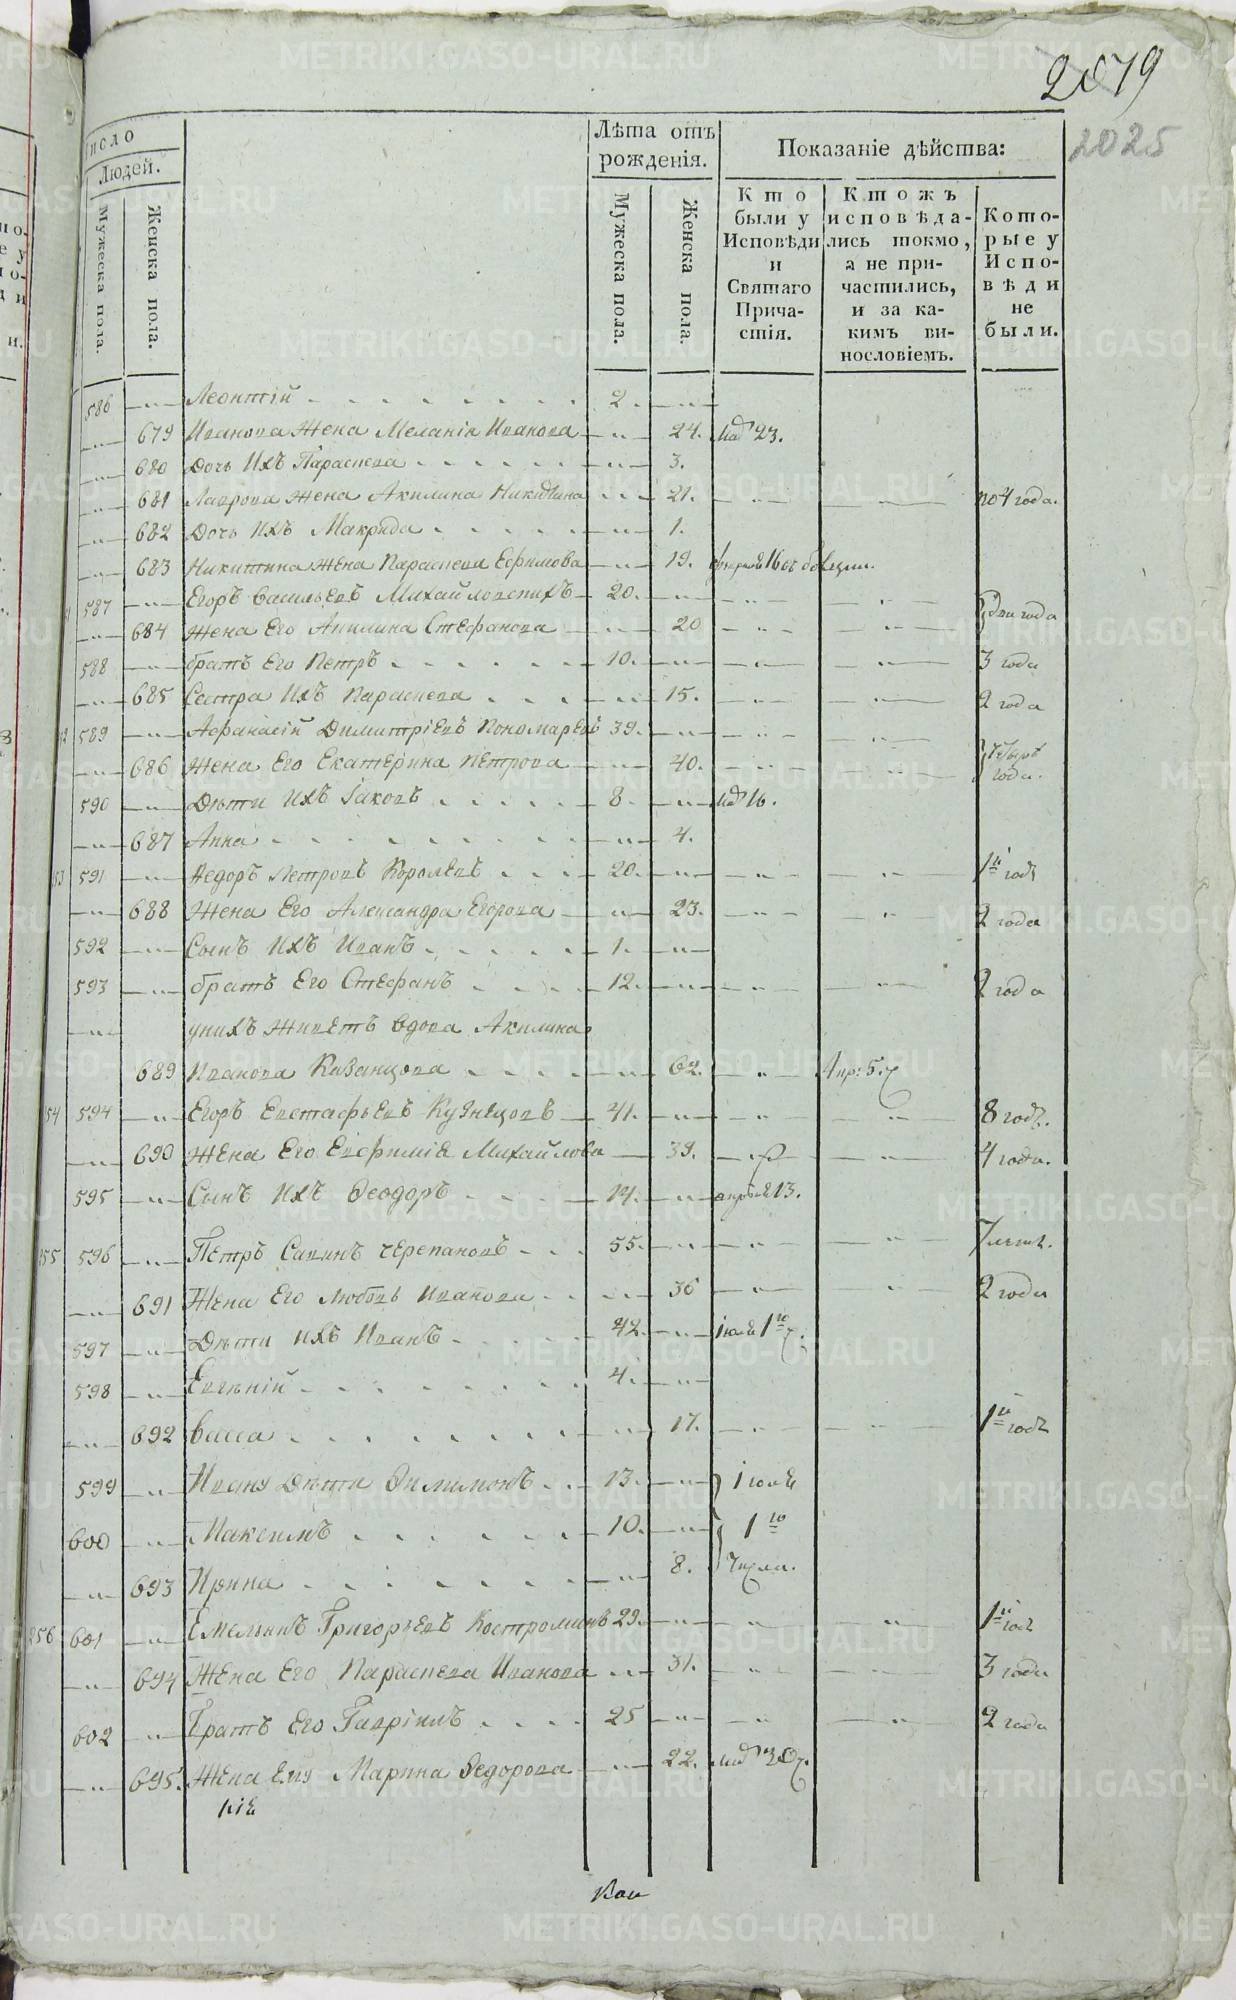 2819
2025
исло
Людей.
Мужеска пола.
Женска пола.
Лѣта отъ рожденія.
Мужеска пола.
Женска пола.
Показаніе дѣйства:
Кто были у Исповѣди и Святаго Причастія.
Ктожъ исповѣдались токмо, а не причастились, и за какимъ винословіемъ.
Которые у Исповѣди не были.
586 —"— Леонтій 2. —"—
—"— 679 Иванова жена Меланія Иванова —"— 24. 23.
—"— 680 Дочь Ихъ Параскева —"— 3.
—"— 681 Лаврова жена Акилина Никитина —"— 21. —"— —"— по 4 года.
—"— 682 Дочь Ихъ Макрида —"— 1.
—"— 683 Никитина жена Параскева Ефимова —"— 19. февраля 16
587 —"— Егоръ Васильевъ Михайловскихъ 20. —"— —"— —"— два года
—"— 684 Жена Его Акилина Стефанова —"— 20 —"— —"—
588 —"— братъ Его Петръ 10. —"— —"— —"— 3 года
—"— 685 Сестра Ихъ Параскева —"— 15. —"— —"— 2 года
589 —"— Афанасій Димитріевъ Пономаревъ 39. —"— —"— —"—
—"— 686 Жена Его Екатерина Петрова —"— 40. —"— —"— года.
590 —"— Дѣти Ихъ Іаковъ 8. —"— 16.
—"— 687 Анна —"— 4.
53 591 —"— Федоръ Петровъ Королевъ 20. —"— —"— —"— 1й годъ
—"— 688 Жена Его Александра Егорова —"— 23. —"— —"— 2 года
592 —"— Сынъ Ихъ Иванъ 1. —"—
593 —"— братъ Его Стефанъ 12. —"— —"— —"— 2 года
—"— унихъ живетъ вдова Акилина
689 Иванова Казанцова 62. —"— Апр: 5.
54 594 —"— Егоръ Евстафьевъ Кузнецовъ 41. —"— —"— —"— 8 годъ.
—"— 690 Жена Его Евфимія Михайлова — 39. —"— —"— 4 года.
595 —"— Сынъ Ихъ Феодоръ 14. —"— апреля 13.
255 596 —"— Петръ Савинъ Черепановъ 55. —"— —"— —"— 7 летъ.
—"— 691 Жена Его Любовь Иванова —"— 36 —"— —"— 2 года
597 —"— Дѣти Ихъ Иванъ 42. —"— Іюля 1го
598 —"— Евгѣній 4. —"—
—"— 692 Васса —"— 17. —"— —"— 1й годъ
599 —"— Ивану Дѣти Филимонъ 13. —"— Іюля
600 —"— Максимъ 10. —"— 1го
—"— 693 Ирина —"— 8. Числа.
256 601 —"— Емельянъ Григорьевъ Костроминъ 29. —"— —"— —"— 1й годъ
—"— 694 Жена Его Параскева Иванова —"— 31. —"— —"— 3 года
602 —"— Братъ Его Гавріилъ 25 —"— —"— —"— 2 года
—"— 695. Жена Ему Марина Федорова —"— 22.
кіе